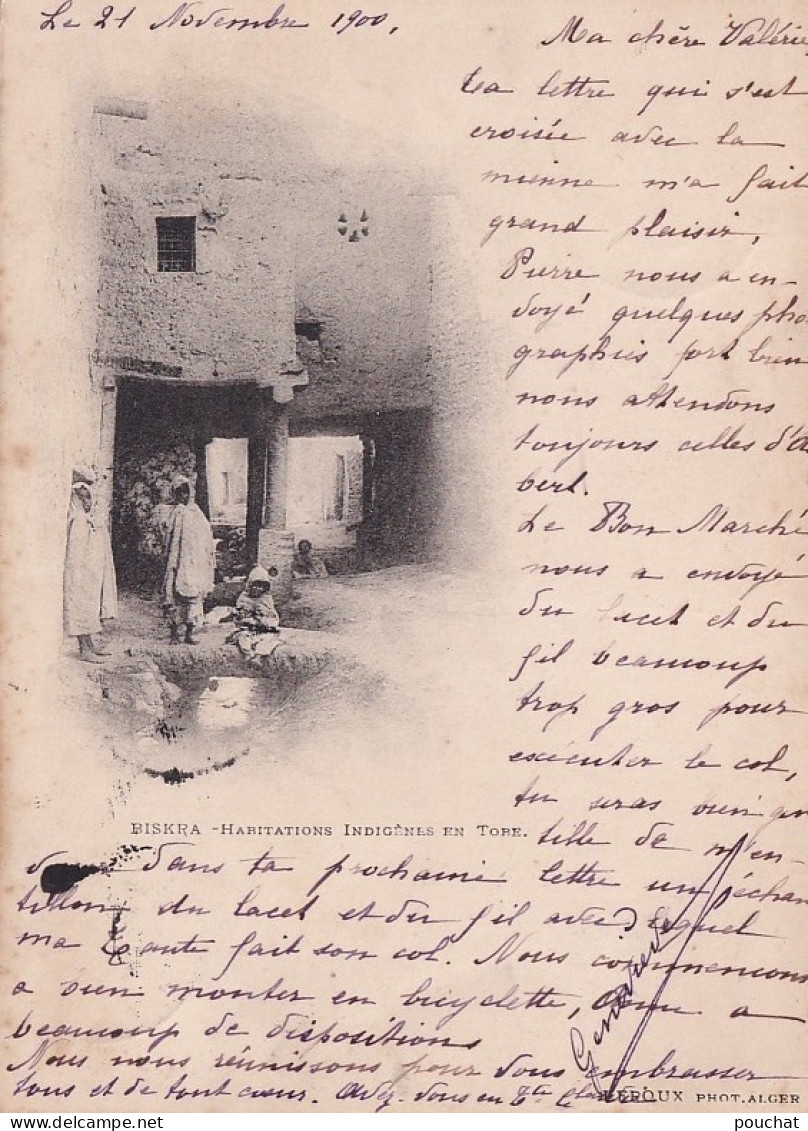 Le 21 Novembre 1900,
Ma chère Valérie,
ta lettre qui s'est
croisée avec la
mienne m'a fait
grand plaisir,
Pierre nous a en-
voyé quelques pho
graphies fort bien
nous attendons
toujours celles d'Al
bert.
Le Bon Marché
nous a envoyé
du lacet et du
fil beaucoup
trop gros pour
exécuter le col,
tu seras bien gen
tille de m'en-
dans ta prochaine lettre un échan
tillon du lacet et du fil avec lequel
ma tante fait son col. Nous commencons
a bien monter en bicyclette, a
beaucoup de dispositions
Nous nous réunissons pour vous embrasser
tous et de tout cœur. Avez-vous eu Tte
Geneviève
BISKRA - HABITATIONS INDIGÈNES EN TOBE.
LEROUX PHOT. ALGER
pouchat